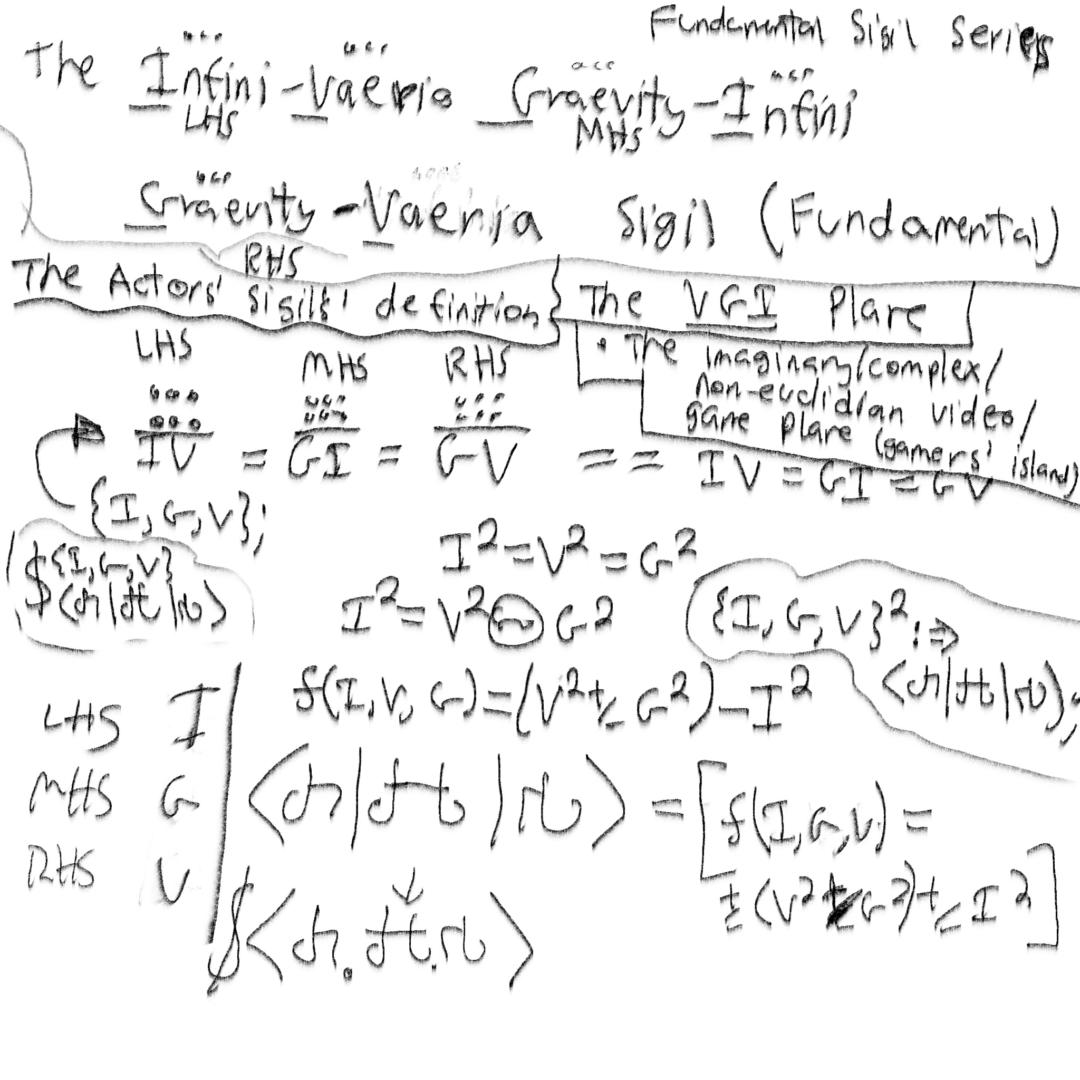 Fundamental Sigil Series
The Infini-Vaeria Graevity-Infini
LHS MHS
Graevity-Vaeria Sigil (Fundamental)
RHS
The Actors' Sigils' definition
The VGI Plane
• The imaginary/complex/
non-euclidian video/
game plane (gamers' island)
LHS MHS RHS
IV = GI = GV == IV = GI = GV
{I,G,V};
${I,G,V}
I²=V²=G²
I²=V² G²
{I,G,V}²:⇒
f(I,V,G)=(V²± G²)-I²
LHS I
MHS G
RHS V
=[f(I,G,V)=
±(V² G²)± I²]